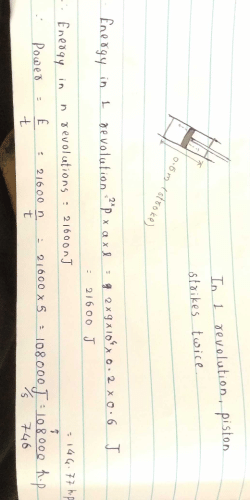 In 1 revolution, piston
strikes twice
0.6m (stroke)
Energy in 1 revolution = 2 × p × a × l = 2 × 9 × 10⁴ × 0.2 × 0.6 J
= 21600 J
∴ Energy in n revolutions = 21600n J
∴ Power = E/t = 21600 n/t = 21600 × 5 = 108000 J/s = 108000/746 h.p
= 144.77 hp